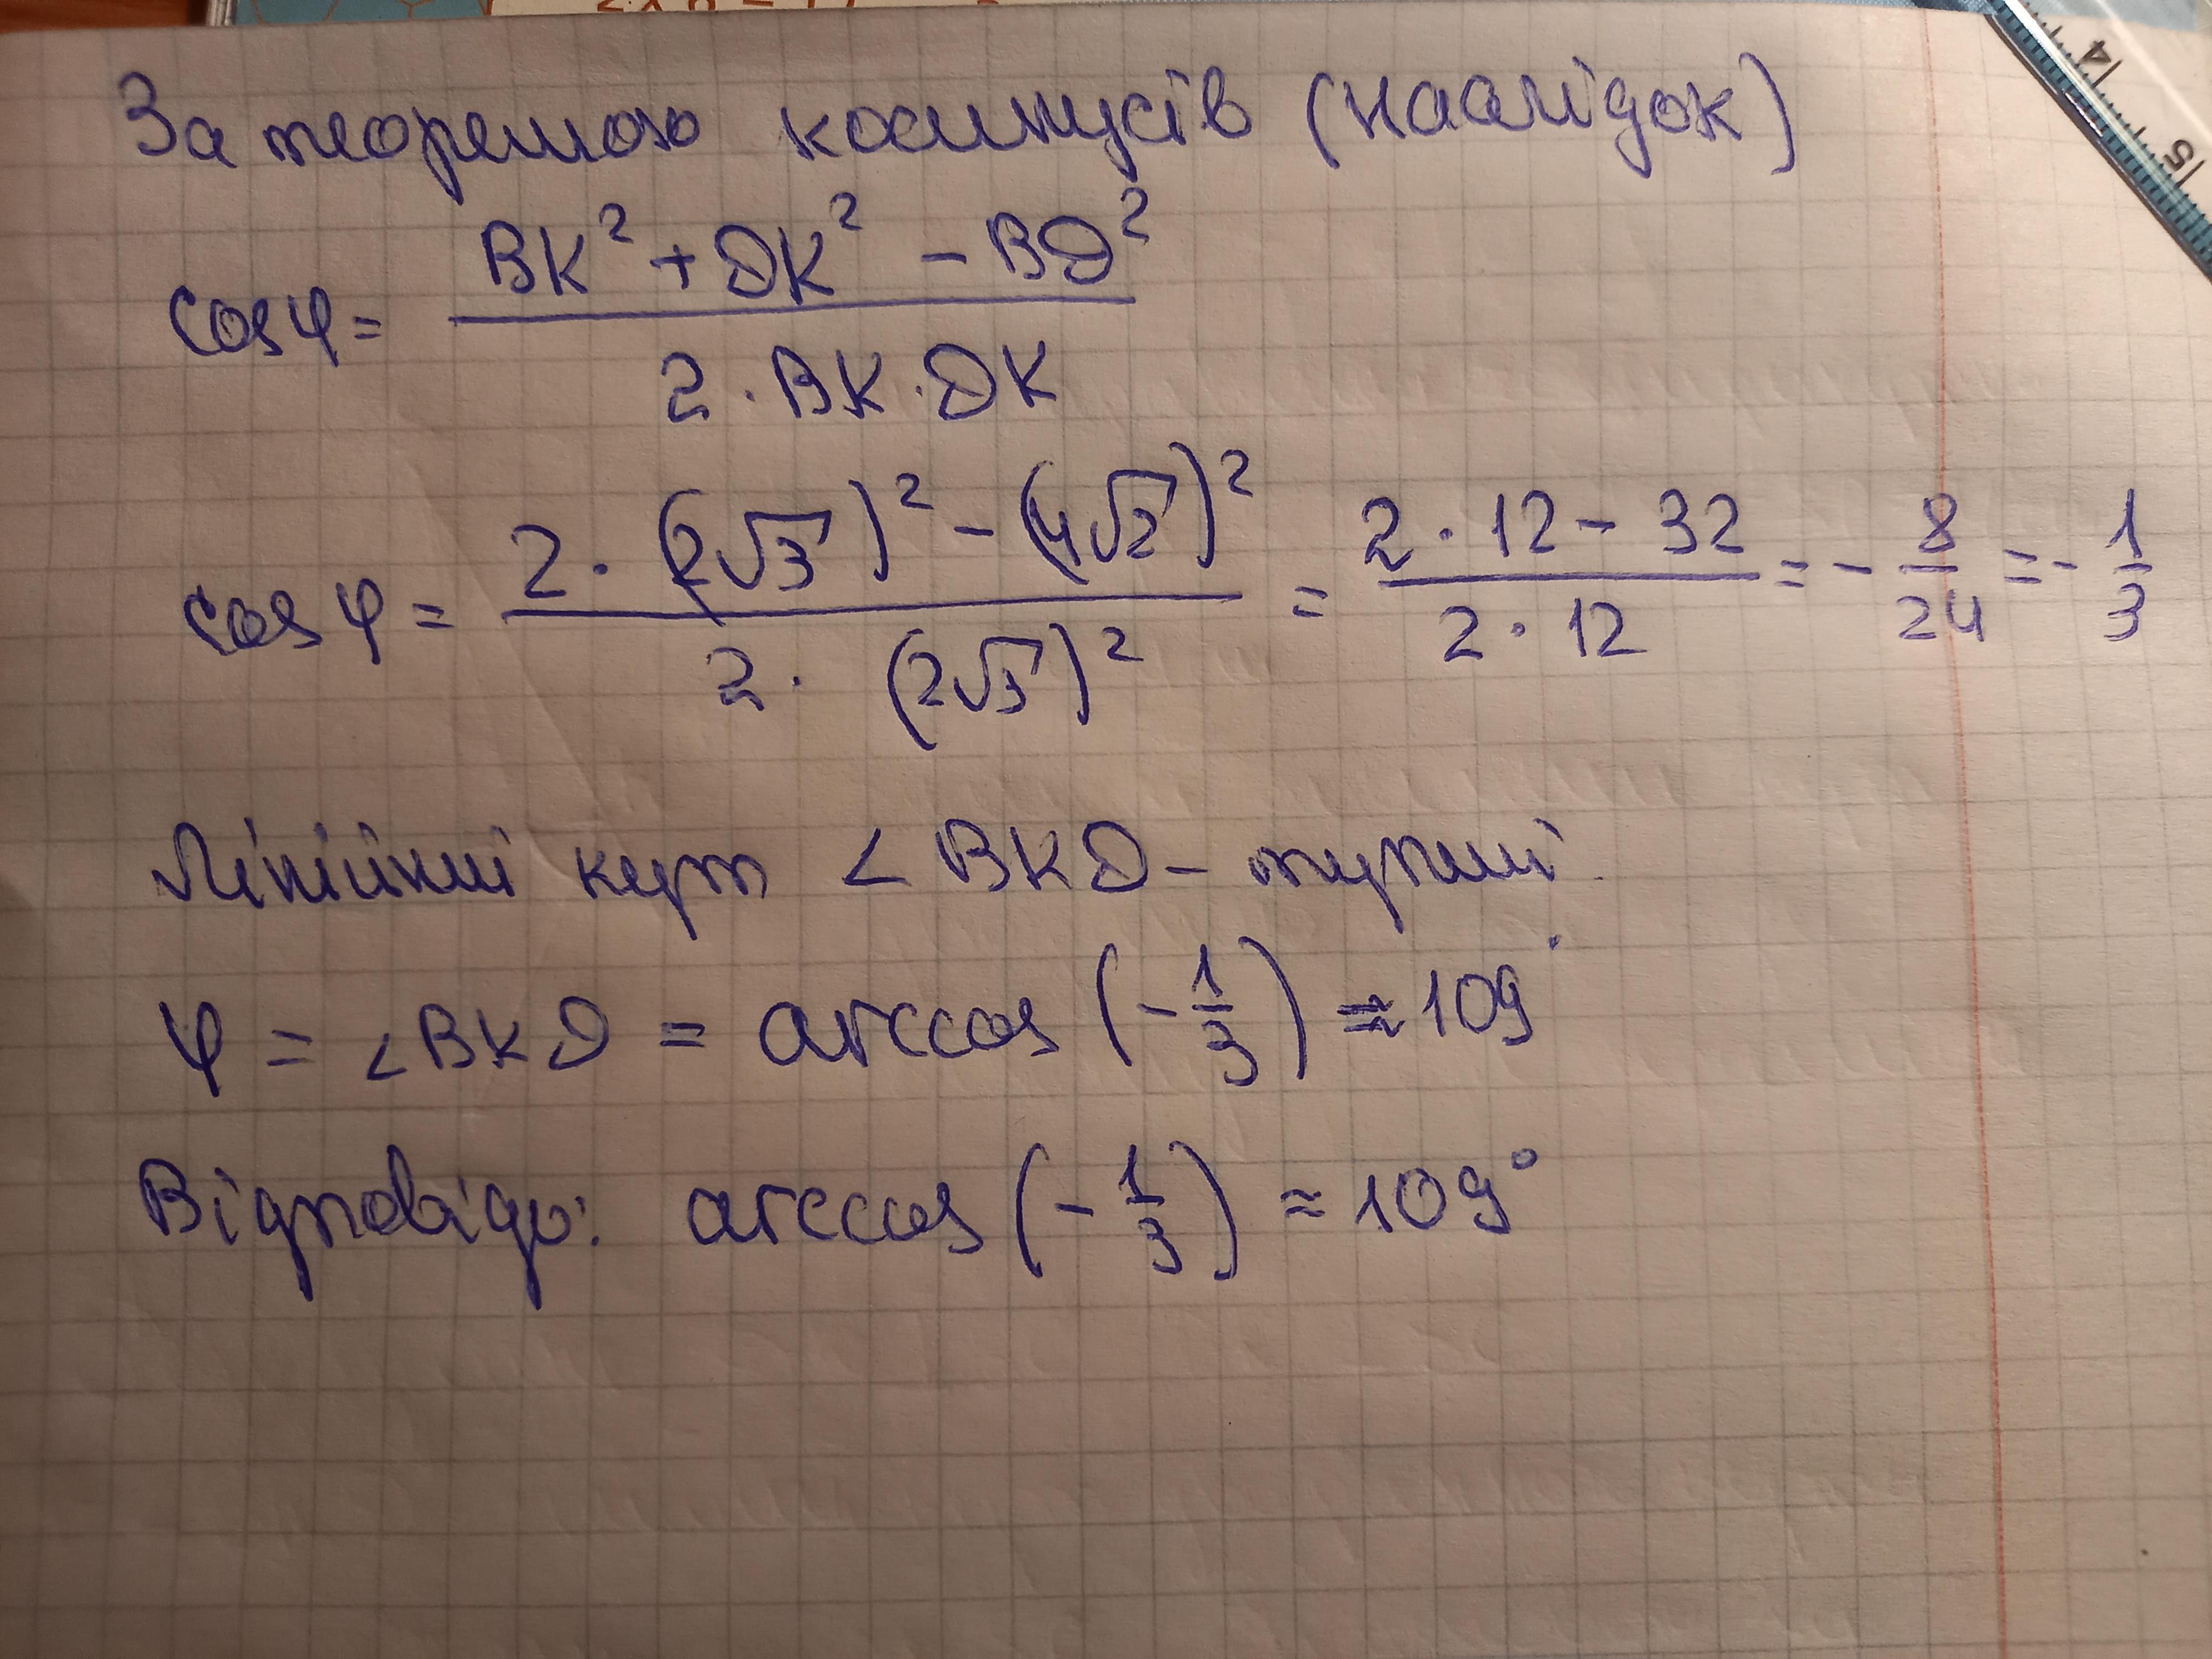 За теоремою косинусів (наслідок)
cos φ = (BK² + DK² - BD²) / (2 · BK · DK)
cos φ = (2 · (2√3)² - (4√2)²) / (2 · (2√3)²) = (2 · 12 - 32) / (2 · 12) = - 8/24 = - 1/3
Лінійний кут ∠BKD - тупий.
φ = ∠BKD = arccos (- 1/3) ≈ 109°
Відповідь: arccos (- 1/3) ≈ 109°
4
5